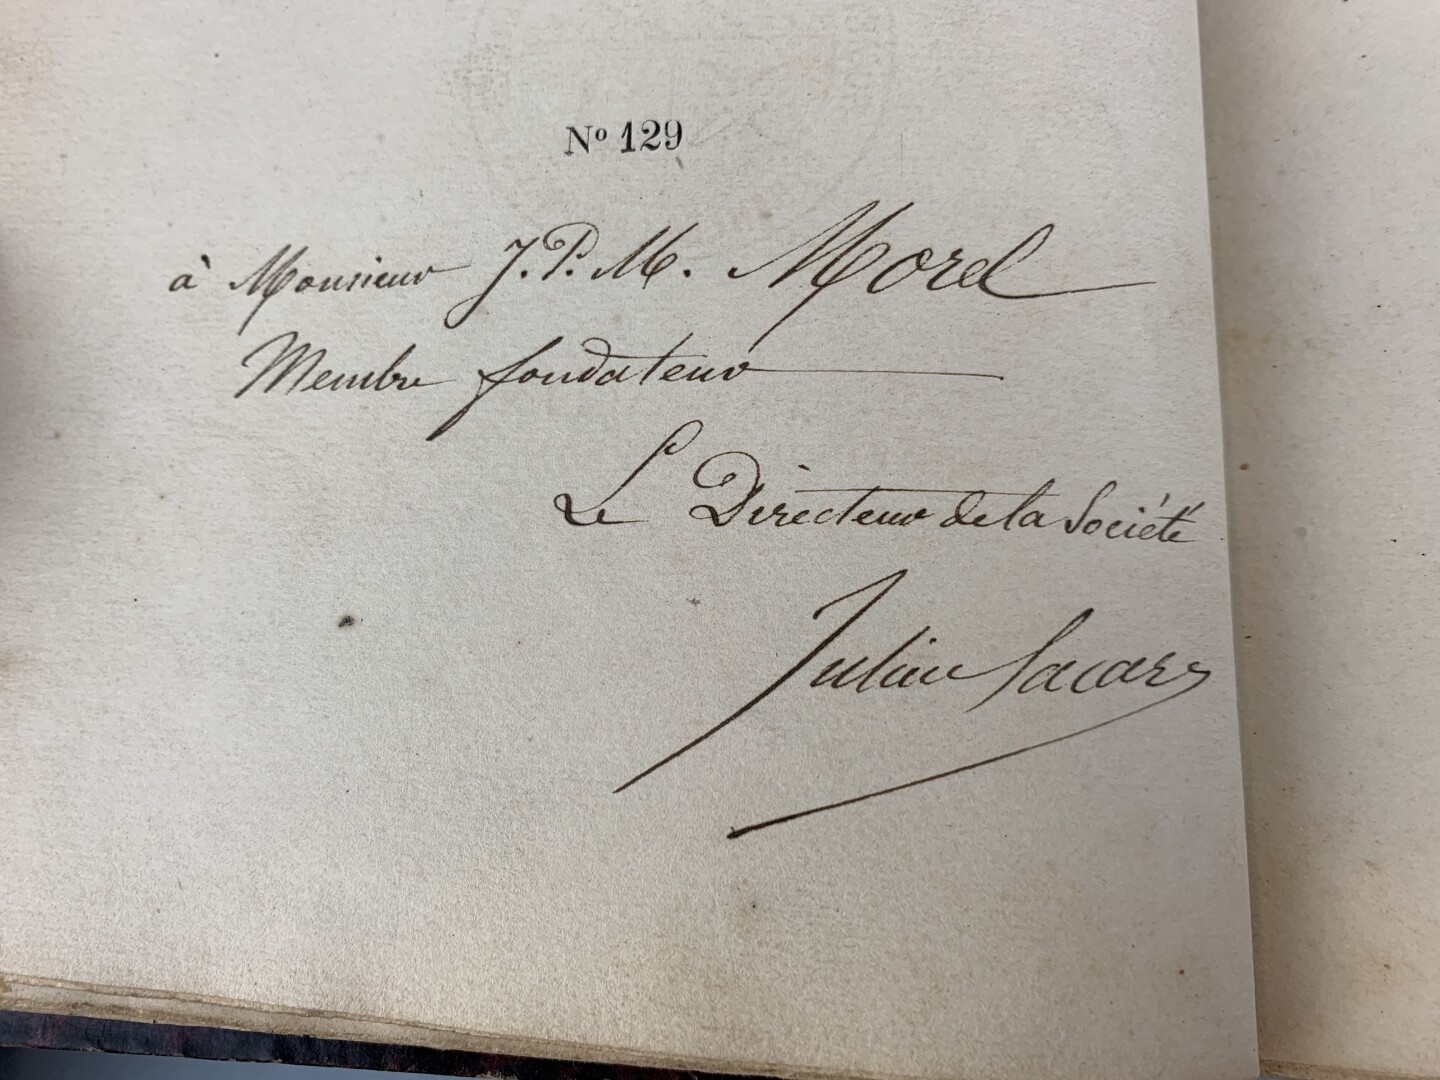 Nº 129
à Monsieur J. P. M. Morel
Membre fondateur
Le Directeur de la Société
Julien Sacaze